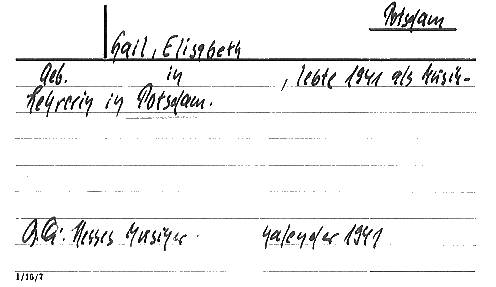 Potsdam
Gail, Elisabeth
Geb. in , lebte 1941 als Musik-
lehrerin in Potsdam.
Q.: Hesses Musiker- Kalender 1941
1/16/7